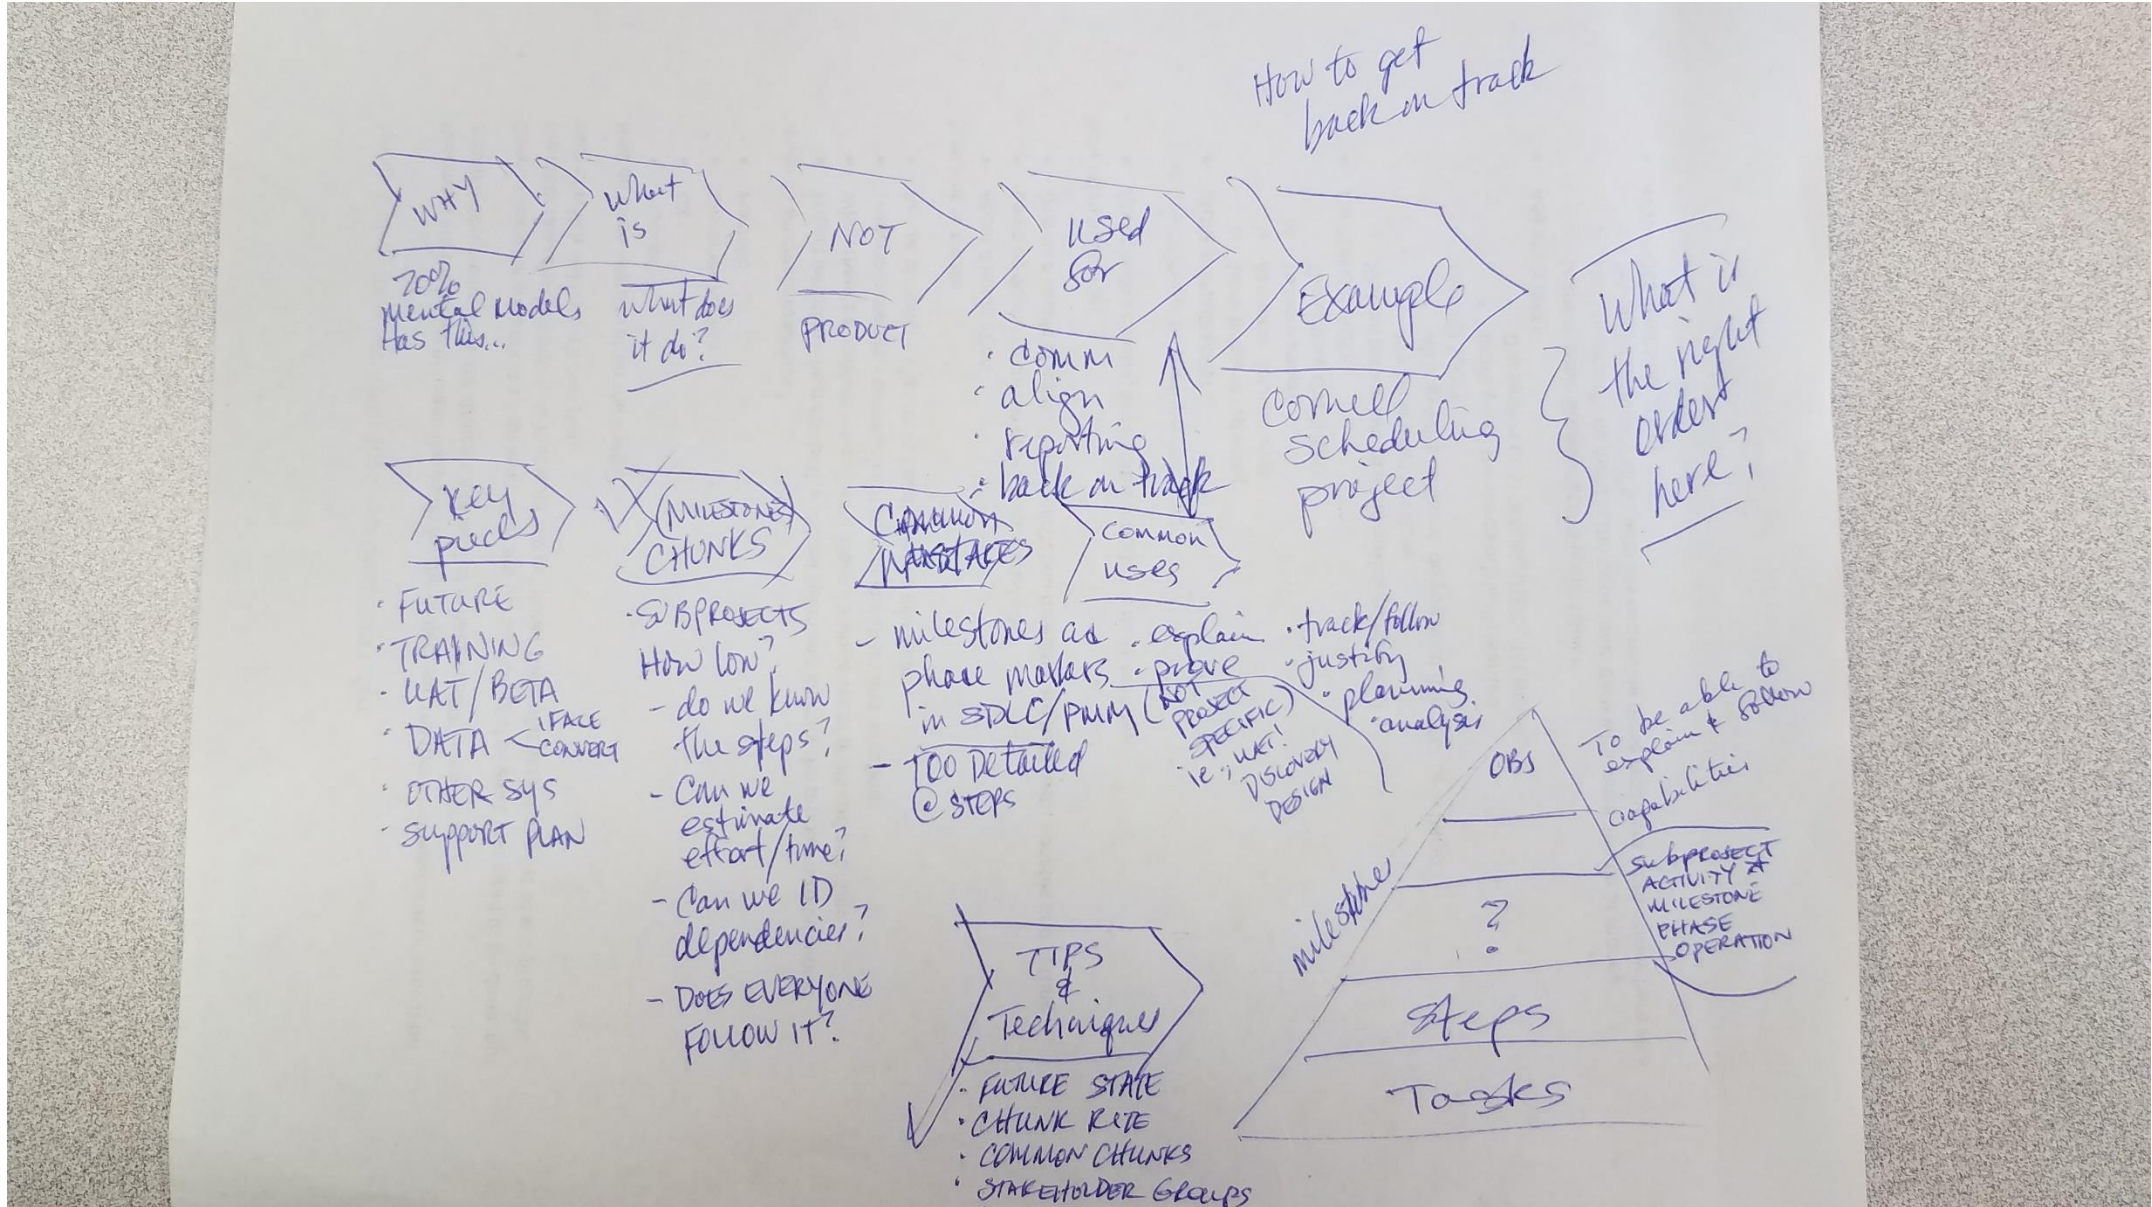 How to get
back on track
WHY
70%
mental models
Has this...
what
is
what does
it do?
NOT
PRODUCT
used
for
· comm
· align
· reporting
· back on track
Example
Cornell
scheduling
project
What is
the right
order
here?
Key
pieces
· FUTURE
· TRAINING
· UAT/BETA
· DATA < IFACE
CONVERT
· OTHER SYS
· SUPPORT PLAN
(MILESTONES)
CHUNKS
· SUBPROJECTS
How low?
- do we know
the steps?
- Can we
estimate
effort/time?
- Can we ID
dependencies?
- DOES EVERYONE
FOLLOW IT?
COMMON
MISTAKES
- milestones as
phase markers
in SDLC/PMM (NOT
PROJECT
SPECIFIC)
ie, UAT!
DISCOVERY
DESIGN
- TOO Detailed
@ STEPS
common
uses
· explain
· prove
· track/follow
· justify
· planning
· analysis
TIPS
&
Techniques
· FUTURE STATE
· CHUNK RITE
· COMMON CHUNKS
· STAKEHOLDER GROUPS
milestone
OBS
?
Steps
Tasks
To be able to
explain & follow
capabilities
Subproject
ACTIVITY *
MILESTONE
PHASE
OPERATION